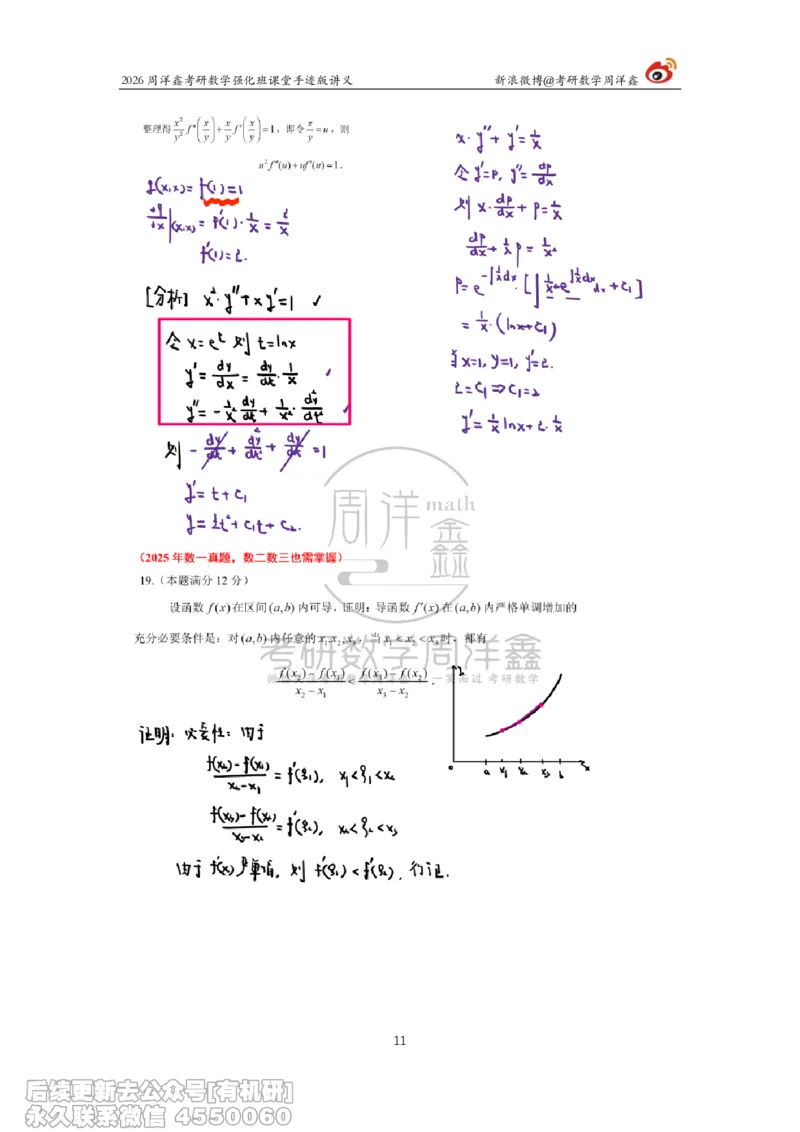 2026 周洋鑫考研数学强化班课堂手迹版讲义
新浪微博@考研数学周洋鑫
整理得 x²/y² f″(x/y) + x/y f′(x/y) = 1，即令 x/y = u，则
u² f″(u) + uf′(u) = 1.
f(1) = 1
f′(1) = 2.
[分析] x²·y″ + xy′ = 1 ✓
令 x = e^t 则 t = lnx
y′ = dy/dx = dy/dt · 1/x ✓
y″ = -1/x² dy/dt + 1/x² · d²y/dt² ✓
则 - dy/dt + d²y/dt² + dy/dt = 1
y′ = t + C₁
y = ½t² + C₁t + C₂.
x·y″ + y′ = 1/x
令 y′ = P, y″ = dp/dx
则 x·dp/dx + P = 1/x
dp/dx + 1/x P = 1/x²
= 1/x · (lnx + C₁)
当 x=1, y=1, y′=2.
2 = C₁ ⇒ C₁ = 2
y′ = 1/x lnx + 2·1/x
周洋鑫math
（2025 年数一真题，数二数三也需掌握）
19.（本题满分 12 分）
设函数 f(x) 在区间 (a,b) 内可导，证明：导函数 f′(x) 在 (a,b) 内严格单调增加的
充分必要条件是：对 (a,b) 内任意的 x₁,x₂,x₃，当 x₁<x₂<x₃ 时，都有
考研数学周洋鑫
(f(x₂)-f(x₁))/(x₂-x₁) < (f(x₃)-f(x₂))/(x₃-x₂).
0 a x₁ x₂ x₃ b x
证明：必要性：由于
(f(x₂)-f(x₁))/(x₂-x₁) = f′(ξ₁), x₁<ξ₁<x₂
(f(x₃)-f(x₂))/(x₃-x₂) = f′(ξ₂), x₂<ξ₂<x₃
由于 f′(x) 严单增, 则 f′(ξ₁) < f′(ξ₂), 得证.
11
后续更新去公众号[有机研]
永久联系微信 4550060